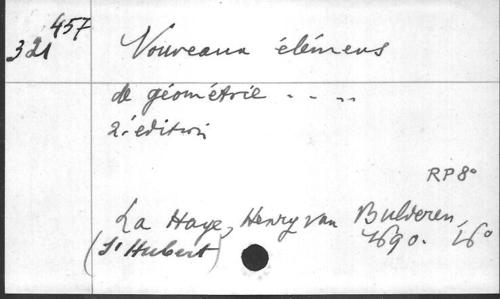 457
321
Nouveaux élémens
de géométrie . . ..
2e edition
RP 8°
La Haye, Henry van Bulderen,
1690. 16°
(St Hubert)